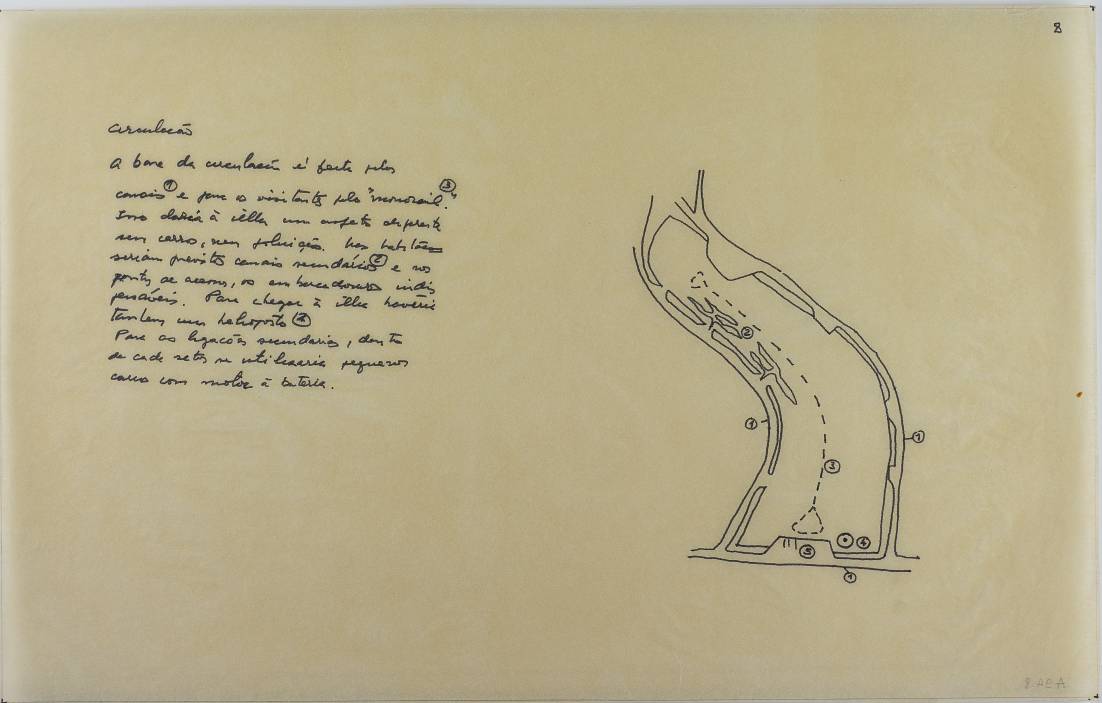 8
circulação
A base da circulação é feita pelos
canais ① e para os visitantes pelo "monorail ③".
Isso daria à ilha um aspeto diferente
sem carro, sem poluição. Nas habitações
seriam previstos canais secundários ② e nos
pontos de acesso, os embarcadouros indis
pensáveis. Para chegar à ilha haveria
tambem um heliporto ④
Para as ligações secundarias, dentro
de cada setor se utilisaria pequenos
carros com motor à bateria.
②
① ①
③
④
⑤
①